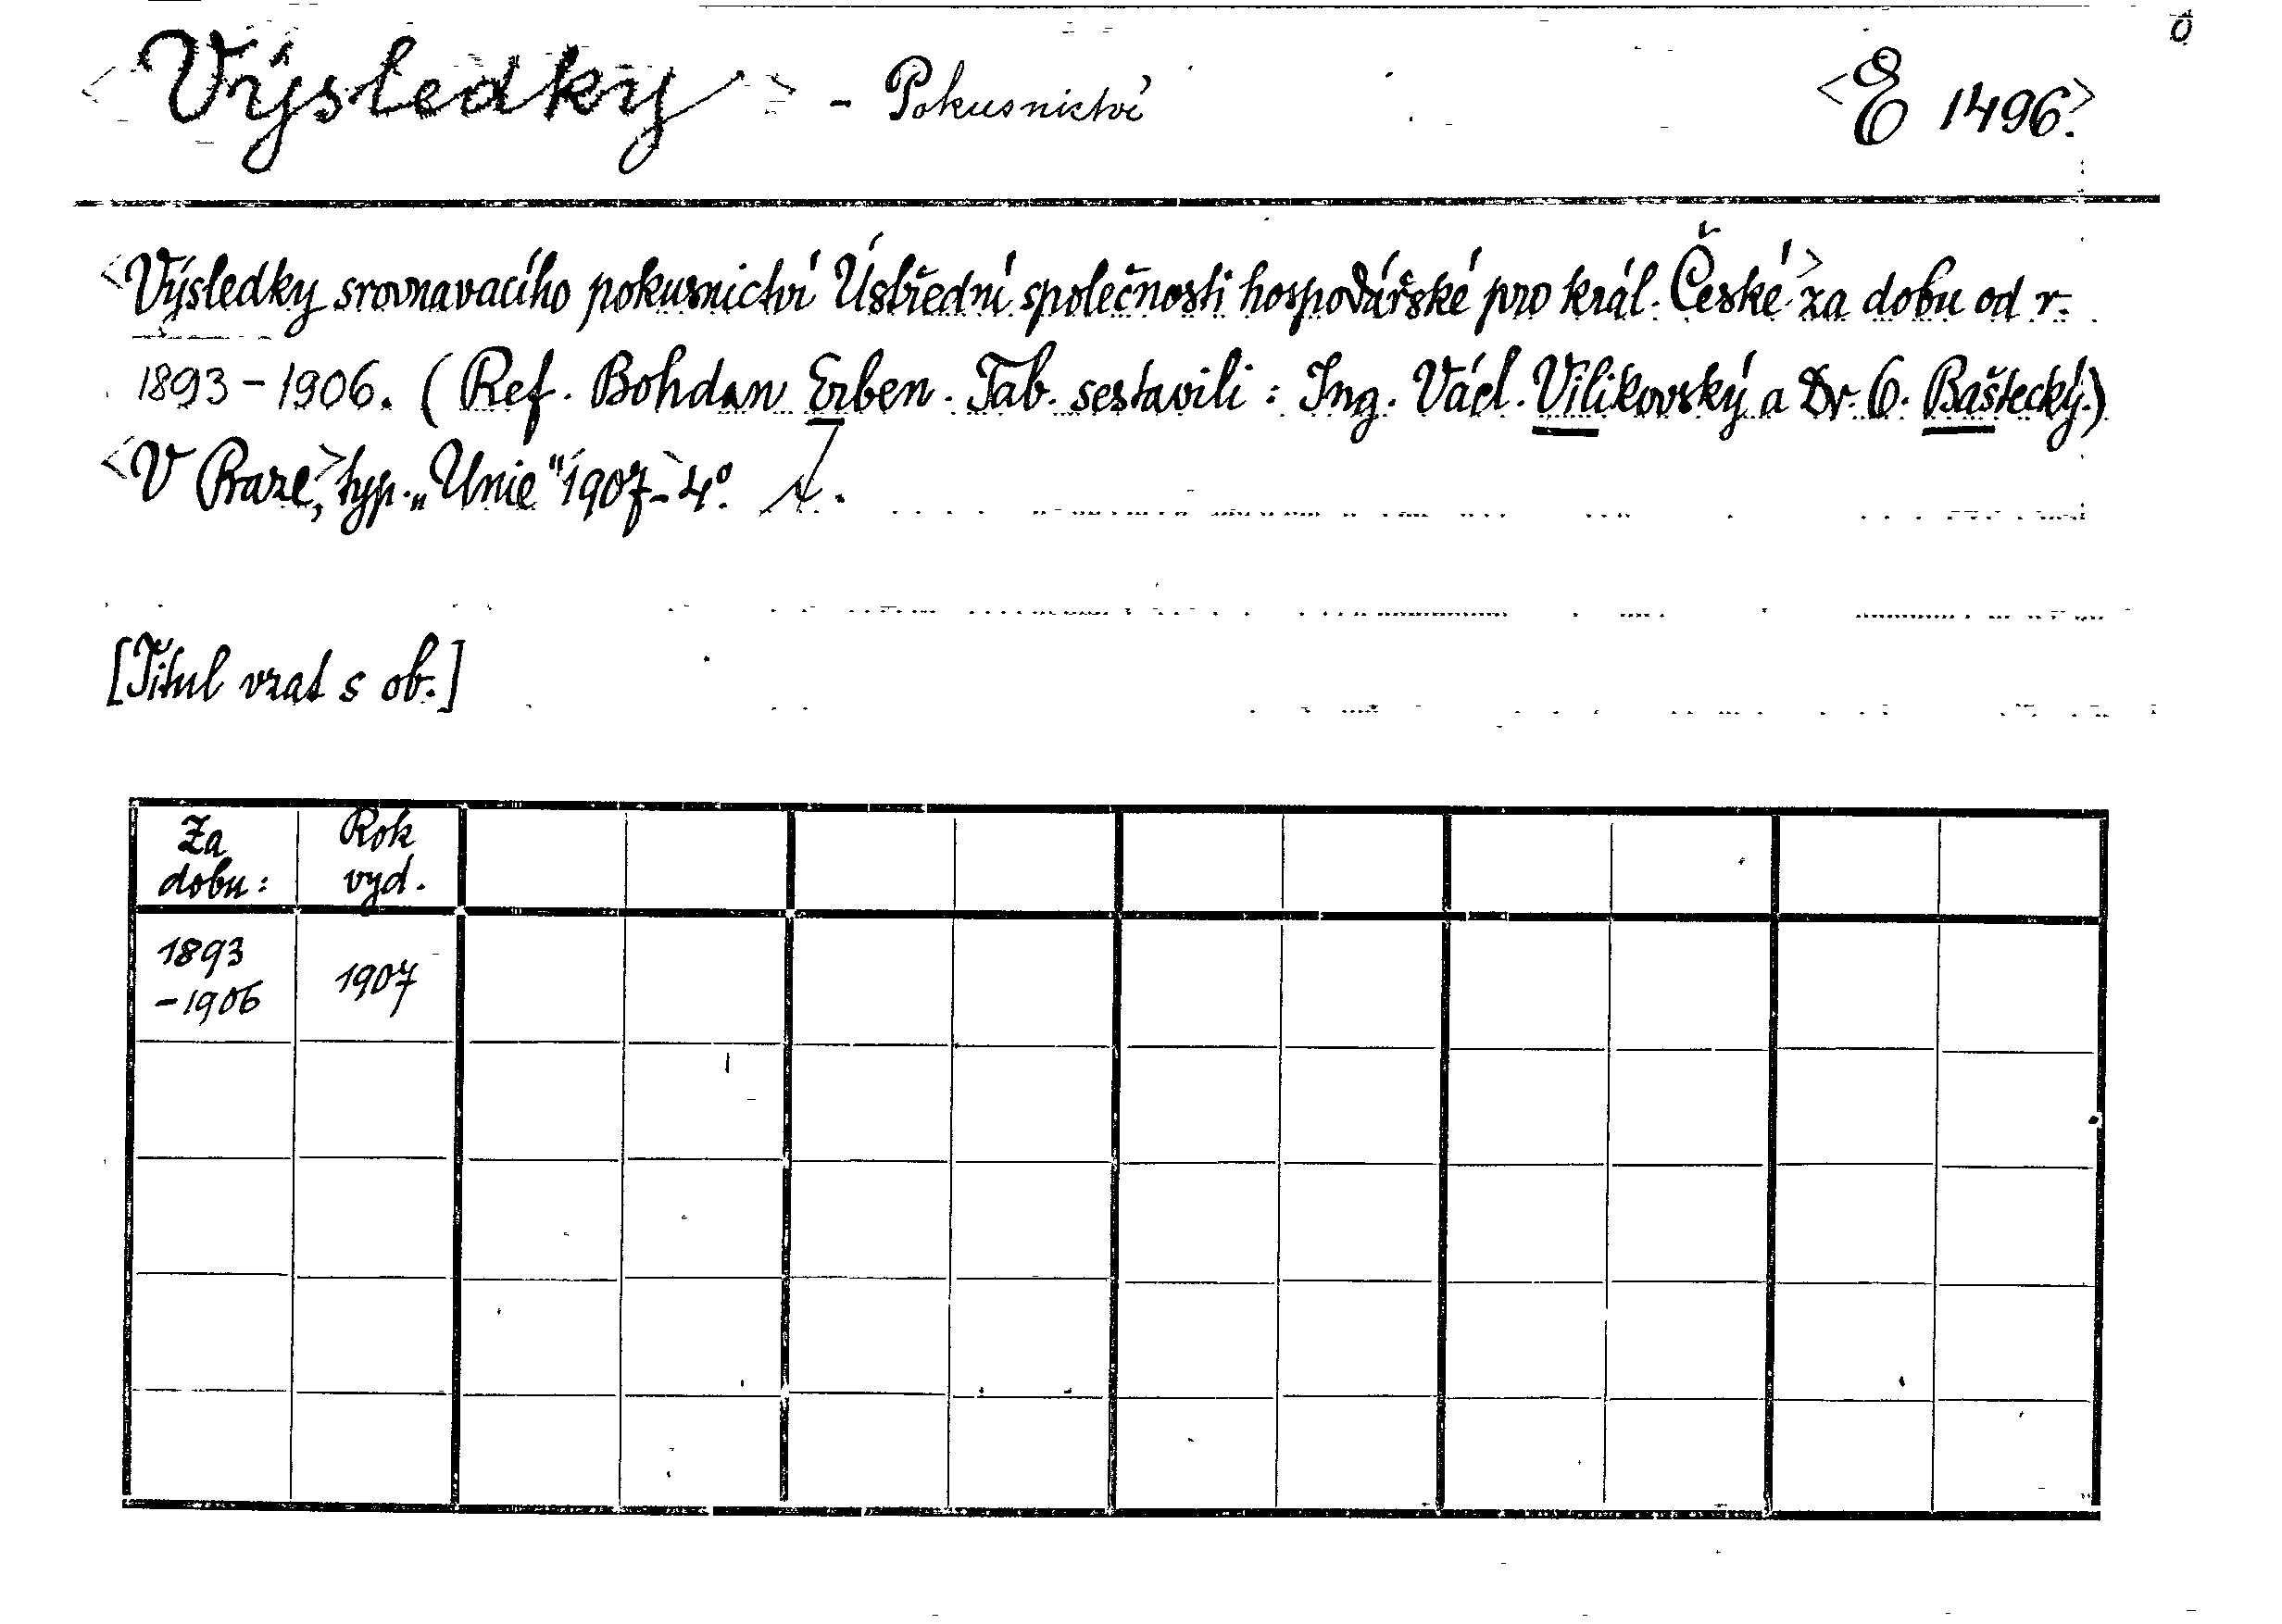 <Výsledky> - Pokusnictví <E 1496.>
<Výsledky srovnavacího pokusnictví Ústřední společnosti hospodářské pro král. České> za dobu od r.
1893-1906. (Ref. Bohdan Erben. Tab. sestavili: Ing. Václ. Vilikovský a Dr. O. Baštecký.)
<V Praze,> typ. „Unie" 1907- 4º.
[Titul vzat s ob.]
Za dobu: Rok vyd.
1893 -1906 1907